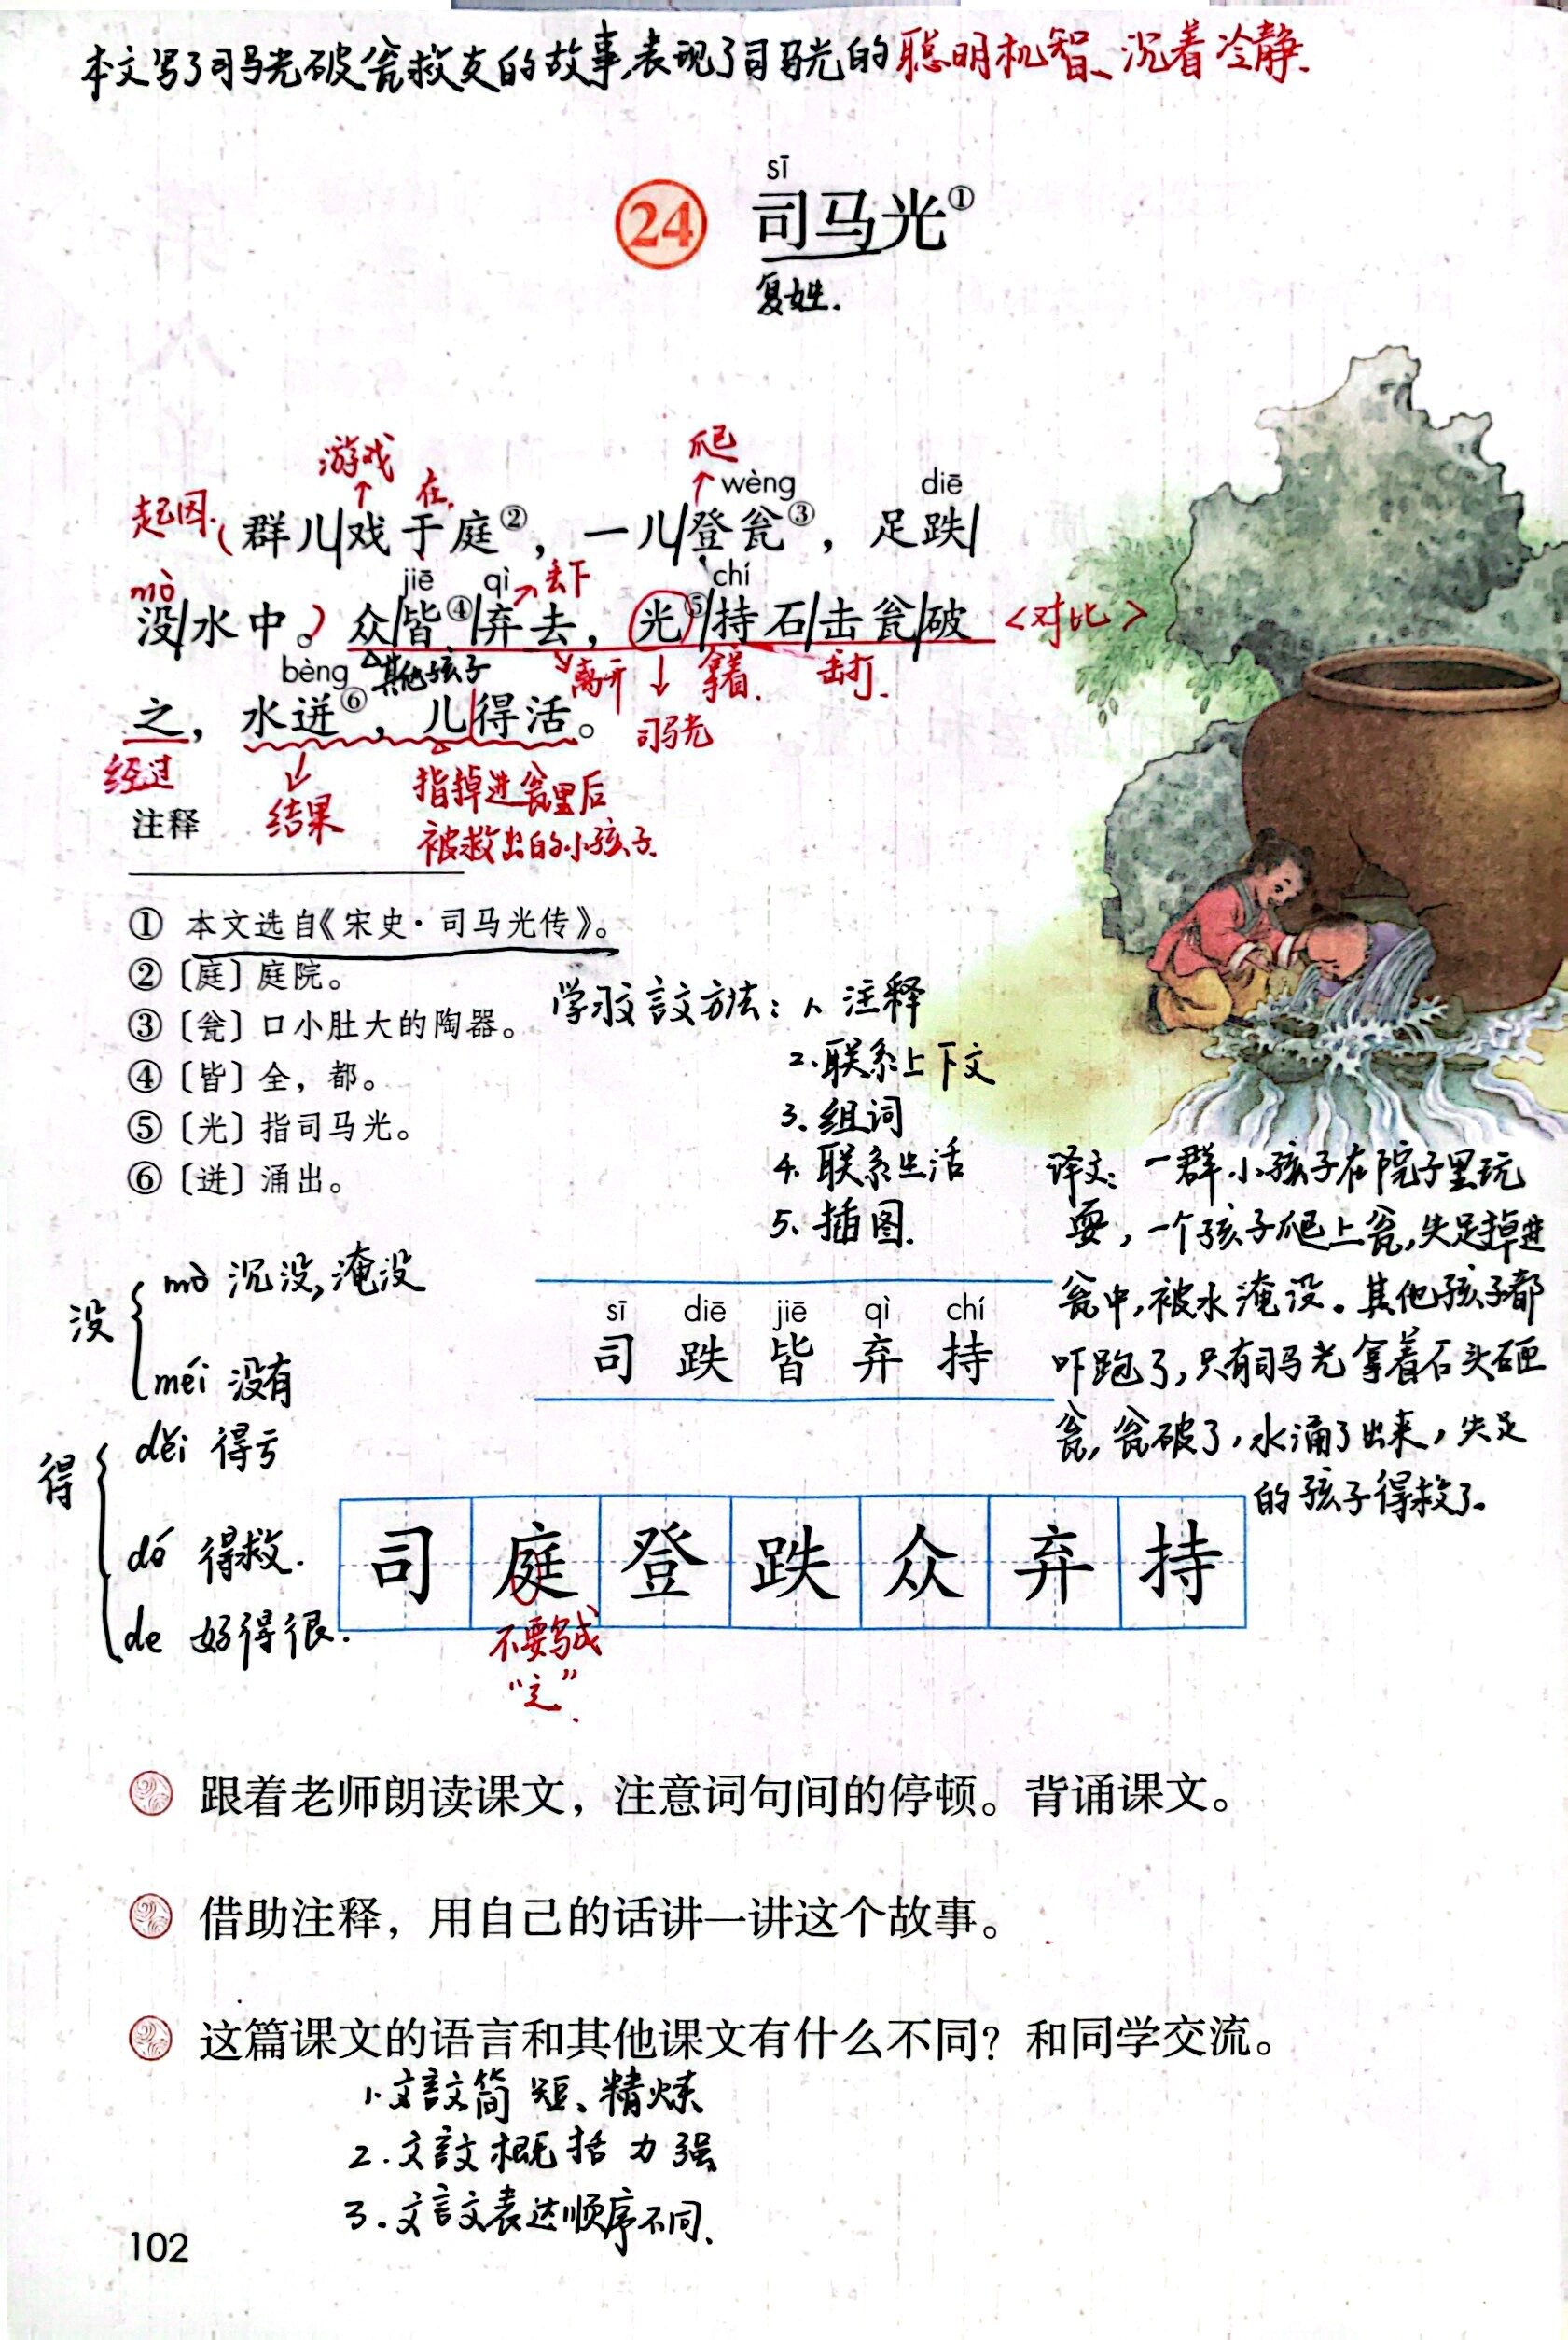 本文写了司马光破瓮救友的故事,表现了司马光的聪明机智、沉着冷静.
sī
24 司马光①
复姓.
游戏 在. 爬
wèng diē
起因. 群儿|戏于庭②，一儿|登瓮③，足跌|
mò jiē qì 丢下 chí
没|水中。众|皆④|弃去，光⑤|持石|击瓮|破 <对比>
bèng 其他孩子 离开 拿着. 击打.
之，水迸⑥，儿|得活。 司马光
经过 结果 指掉进瓮里后
被救出的小孩子.
注释
① 本文选自《宋史·司马光传》。
②〔庭〕庭院。
③〔瓮〕口小肚大的陶器。
④〔皆〕全，都。
⑤〔光〕指司马光。
⑥〔迸〕涌出。
学习文言文方法：1. 注释
2.联系上下文
3.组词
4.联系生活
5.插图.
译文：一群小孩子在院子里玩
耍，一个孩子爬上瓮,失足掉进
瓮中,被水淹没。其他孩子都
吓跑了,只有司马光拿着石头砸
瓮,瓮破了,水涌了出来,失足
的孩子得救了。
没 mò 沉没,淹没
méi 没有
得 děi 得亏
dé 得救.
de 好得很.
sī diē jiē qì chí
司 跌 皆 弃 持
司 庭 登 跌 众 弃 持
不要写成
“定”.
跟着老师朗读课文，注意词句间的停顿。背诵课文。
借助注释，用自己的话讲一讲这个故事。
这篇课文的语言和其他课文有什么不同？和同学交流。
1.文言文简短、精炼
2.文言文概括力强
3.文言文表达顺序不同.
102